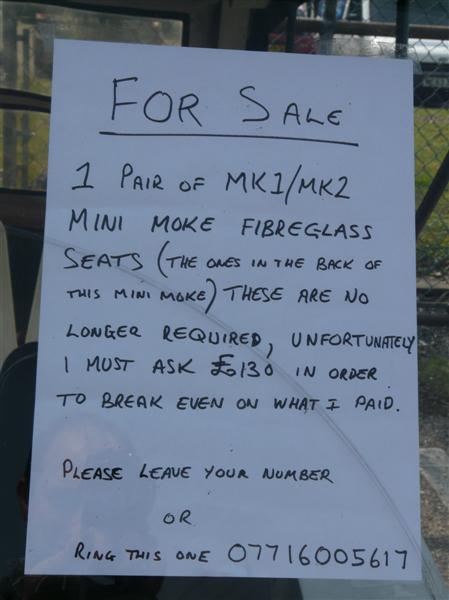 FOR SALE
1 PAIR OF MK1/MK2
MINI MOKE FIBREGLASS
SEATS (THE ONES IN THE BACK OF
THIS MINI MOKE) THESE ARE NO
LONGER REQUIRED, UNFORTUNATELY
I MUST ASK £130 IN ORDER
TO BREAK EVEN ON WHAT I PAID.
PLEASE LEAVE YOUR NUMBER
OR
RING THIS ONE 07716005617